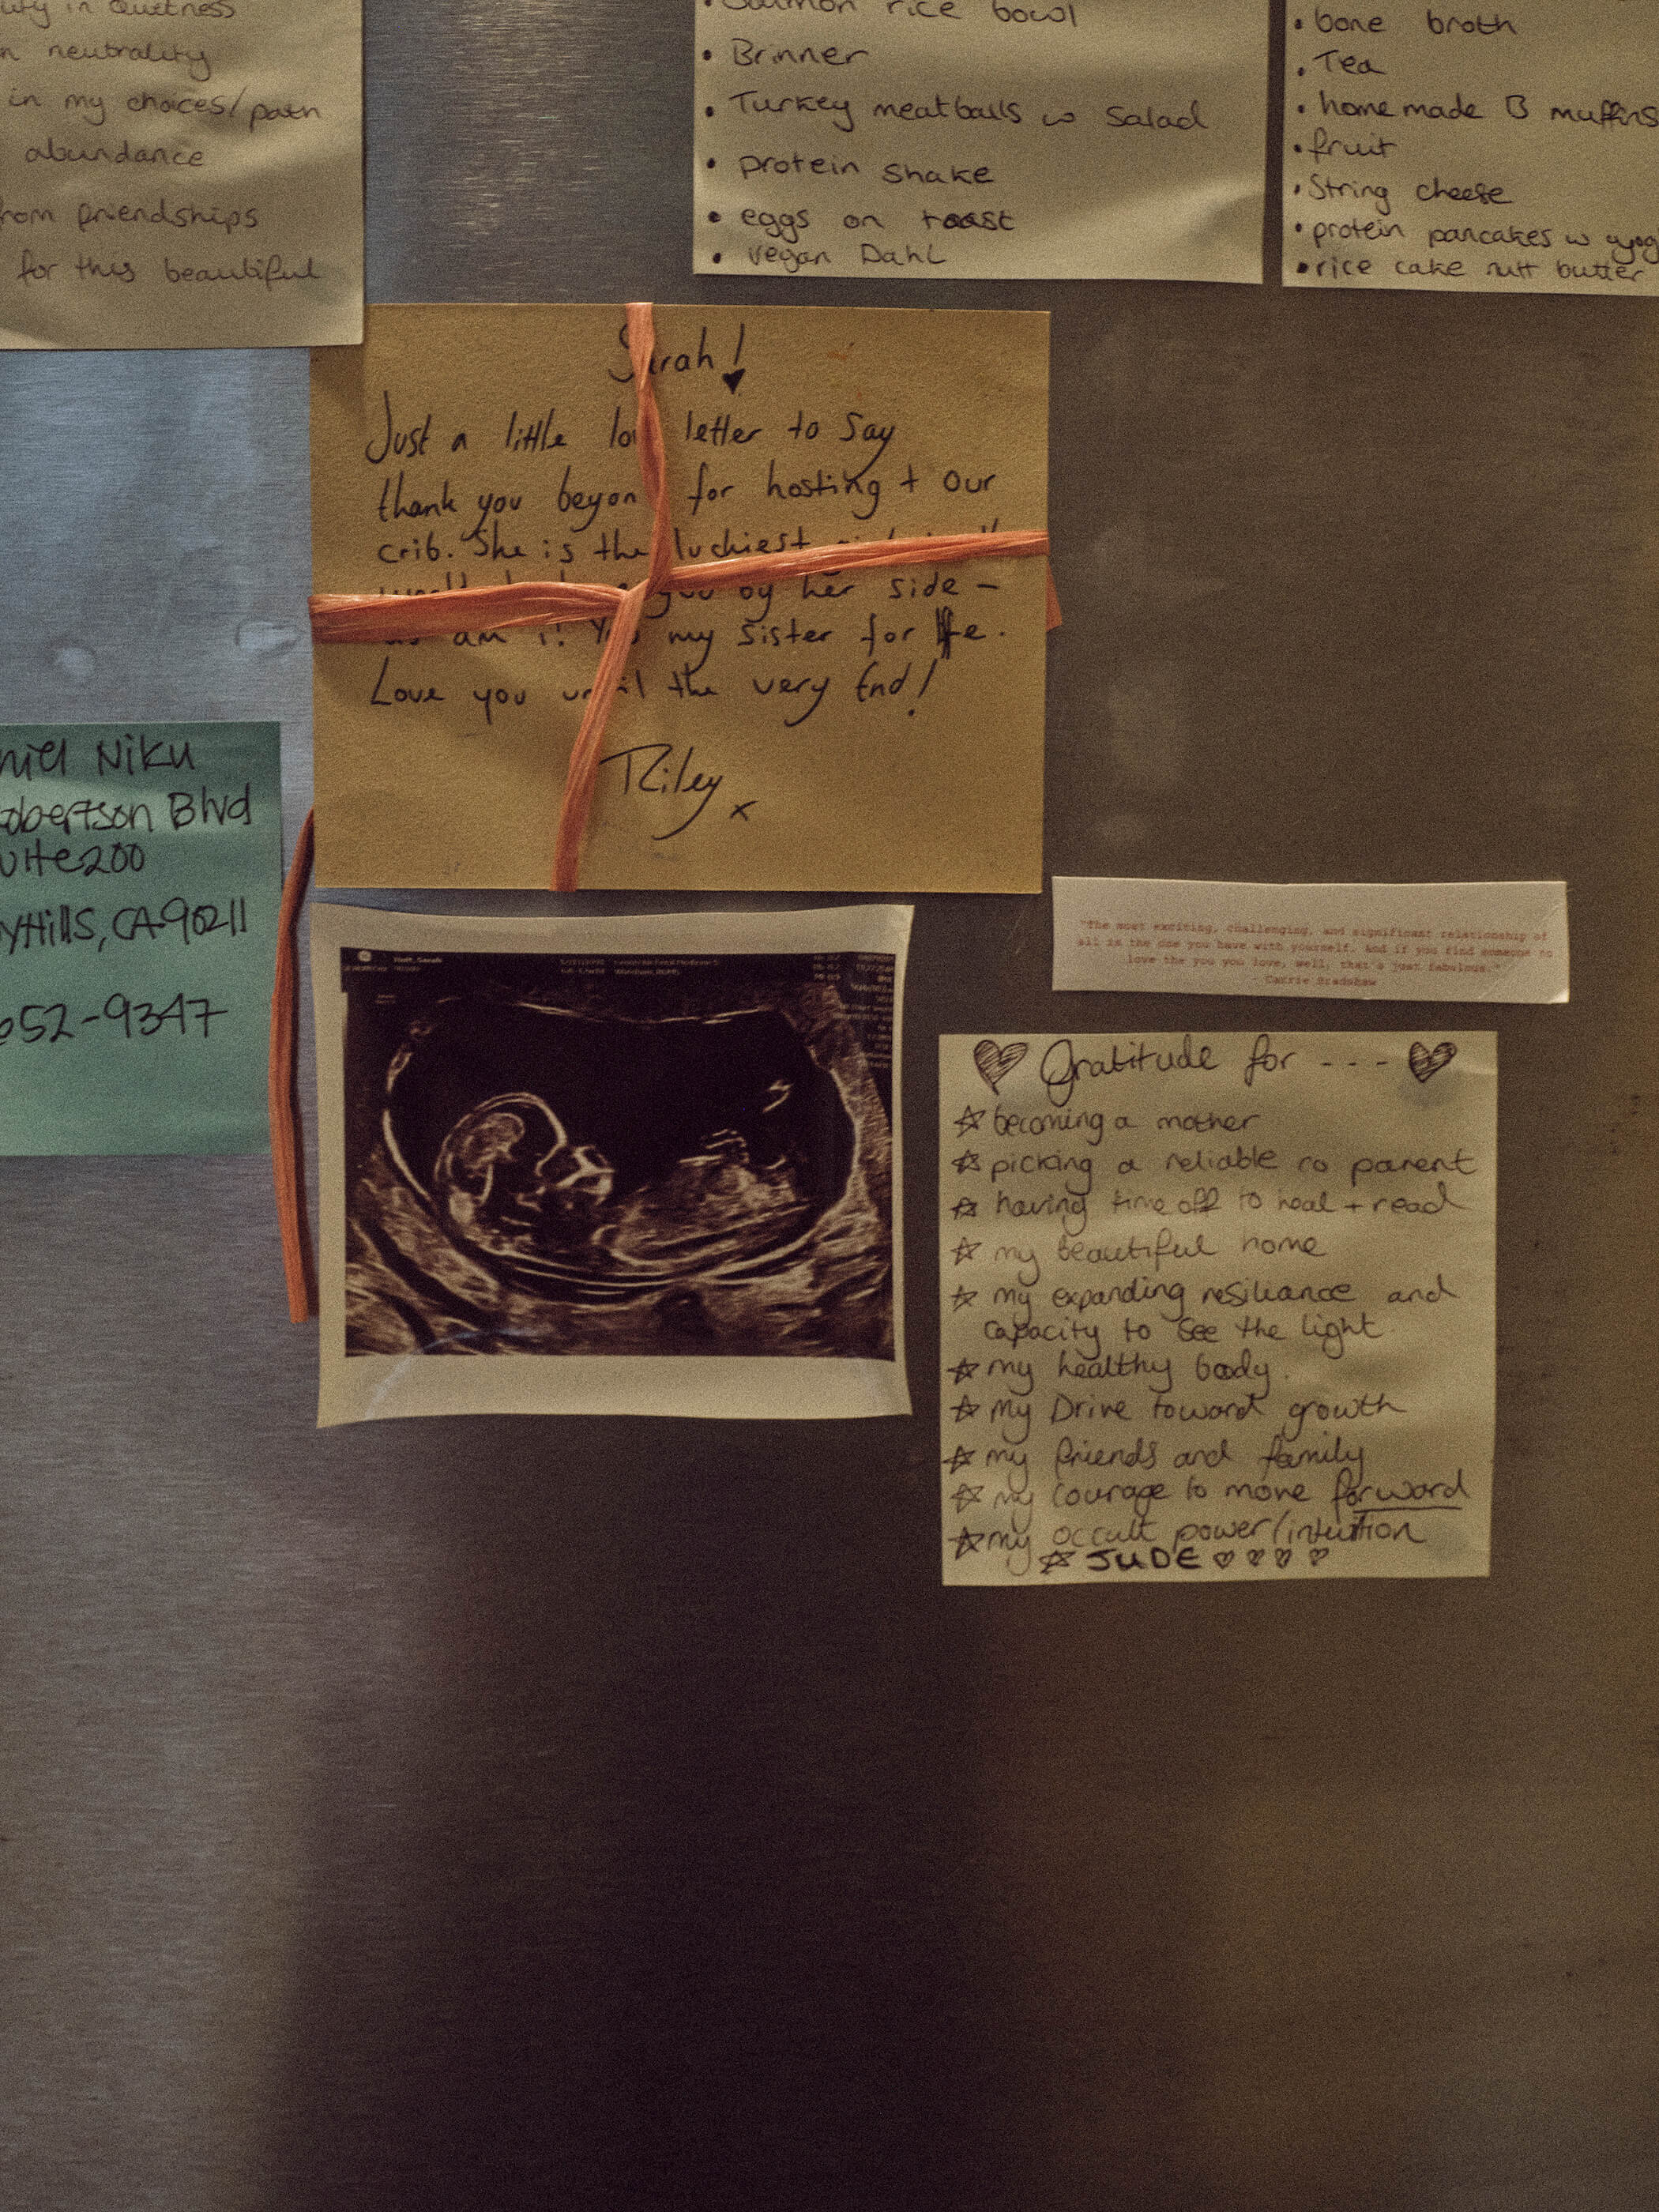 in Quietness
neutrality
in my choices/path
abundance
friendships
for this beautiful
rice bowl
• Brinner
• Turkey meatballs w Salad
• protein shake
• eggs on toast
• vegan Dahl
• bone broth
• Tea
• homemade B muffins
• fruit
• String cheese
• protein pancakes w
• rice cake nutt butter
Sarah!
Just a little letter to say
thank you for hosting + our
crib. She is the luckiest
you by her side –
am i! my sister for life.
Love you until the very End!
Riley x
Niku
Blvd
200
Hills, CA 90211
652-9347
"The most exciting, challenging, and significant relationship of
all is the one you have with yourself. And if you find someone to
love the you you love, well, that's just fabulous."
- Carrie Bradshaw
Gratitude for - - -
becoming a mother
picking a reliable co parent
having time off to heal + read
my beautiful home
my expanding resiliance and
capacity to see the light
my healthy body.
my Drive toward growth
my friends and family
my courage to move forward
my occult power/intuition
JUDE